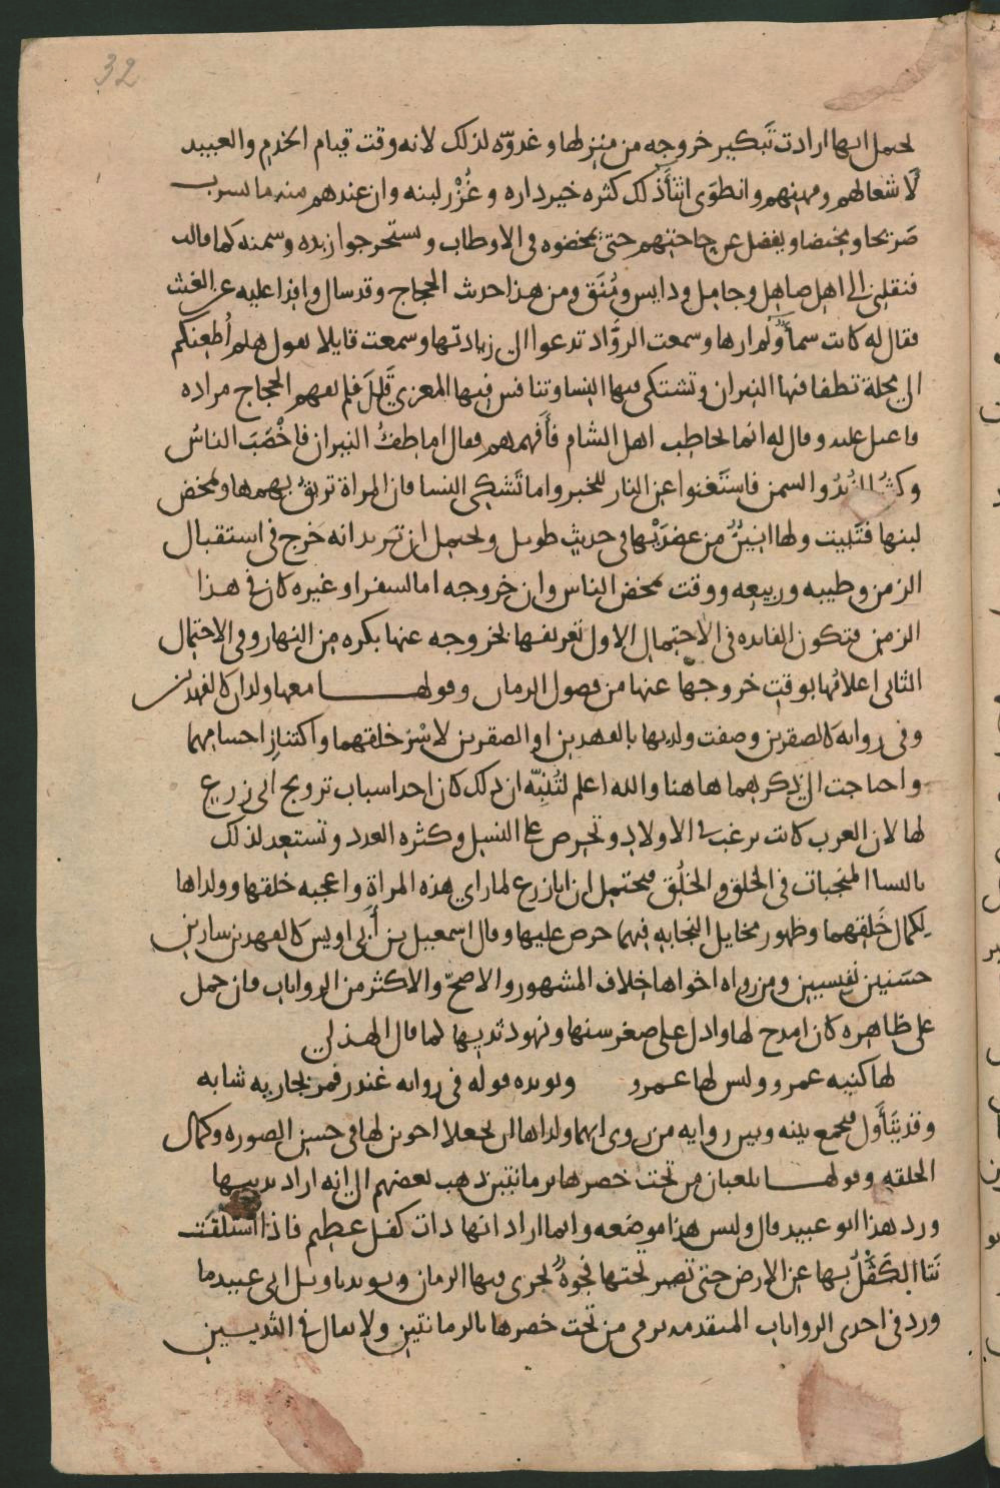 32
يحتمل انها ارادت تبكير خروجه من منزلها وغدوّه لذلك لانه وقت قيام الخدم والعبيد
لاشغالهم ومهنهم وانطوى اثناء ذلك كثره خير داره وغُزْر لبنه وان عندهم منه ما يشرب
صريحا ومخيضا ويفضل عن حاجتهم حتى يمخضوه في الاوطاب ويستخرجوا زبده وسمنه كما قالت
فنقلني الى اهل صاهل وجامل ودايس ومُنَق ومن هذا حدث الحجاج وقد سال وافدا عليه عن الغيث
فقال له كانت سماء ولم ارها وسمعت الروَّاد تدعوا الى زيادتها وسمعت قايلا يقول هلم اُطعنكم
الى محلة تطفا فيها النيران وتشتكي فيها النسا وتنافس فيها المعزي قال فلم يفهم الحجاج مراده
فاعتل عليه وقال له انما تخاطب اهل الشام فأفهمهم فقال اما طفْءُ النيران فاخْصَبَ الناسُ
وكثر الزُبدُ والسمن فاستغنوا عن النار للخبز واما تَشكي النسا فان المراة تربقُ بهمها وتمخض
لبنها فتبيت ولها انينٌ من عضديْها في حديث طويل ويحتمل ان تريد انه خرج في استقبال
الزمن وطيبه وربيعه ووقت مخض الناس وان خروجه اما لسفر او غيره كان في هذا
الزمن فتكون الفايده في الاحتمال الاول تعريفها بخروجه عنها بكره من النهار وفي الاحتمال
الثاني اعلامها بوقت خروجها عنها من فصول الزمان وقولها معها ولدان كالفهدين
وفي روايه كالصقرين وصفت ولديها بالفهدين او الصقرين لاسْر خلقهما واكتناز اجسامهما
واحتاجت الى ذكرهما هاهنا والله اعلم لتُنبّه ان ذلك كان احد اسباب تزويج ابي زرع
لها لان العرب كانت ترغب في الاولاد وتحرص على النسل وكثره العدد وتستعد لذلك
بالنسا المنجبات في الخلق والخلُق فيحتمل ان ابا زرع لما راي هذه المراة واعجبه خلقها وولداها
لكمال خَلقهما وظهور مخايل النجابه فيهما حرص عليها وقال اسمعيل بن أبي اويس كالفهدين سارين
حسَنين نفيسين ومن رواه اخواها خلاف المشهور والاصحّ والاكثر من الروايات فان حمل
على ظاهره كان امدح لها وادل على صغر سنها ونهود ثديها كما قال الهذلي
لها كنيه عمرو وليس لها عمرو ويويده قوله في روايه غندر فمر بجاريه شابه
وقد يُتَأَوَّل فيجمع بينه وبين روايه من روى انهما ولداها ان يجعلا اخوين لها في حسن الصوره وكمال
الخلقه وقولها يلعبان من تحت خصرها برمانتين ذهب بعضهم الى انه اراد ثدييها
ورد هذا ابو عبيد قال وليس هذا موضعه وانما اراد انها ذات كفل عظيم فاذا استلقَت
نتا الكَفَلُ بها عن الارض حتى تصير تحتها فجوةٌ يجري فيها الرمان ويويد تاويل ابي عبيد ما
ورد في احدى الروايات المتقدمه يرمي من تحت خصرها بالرمانتين ولا يقال في الثديين